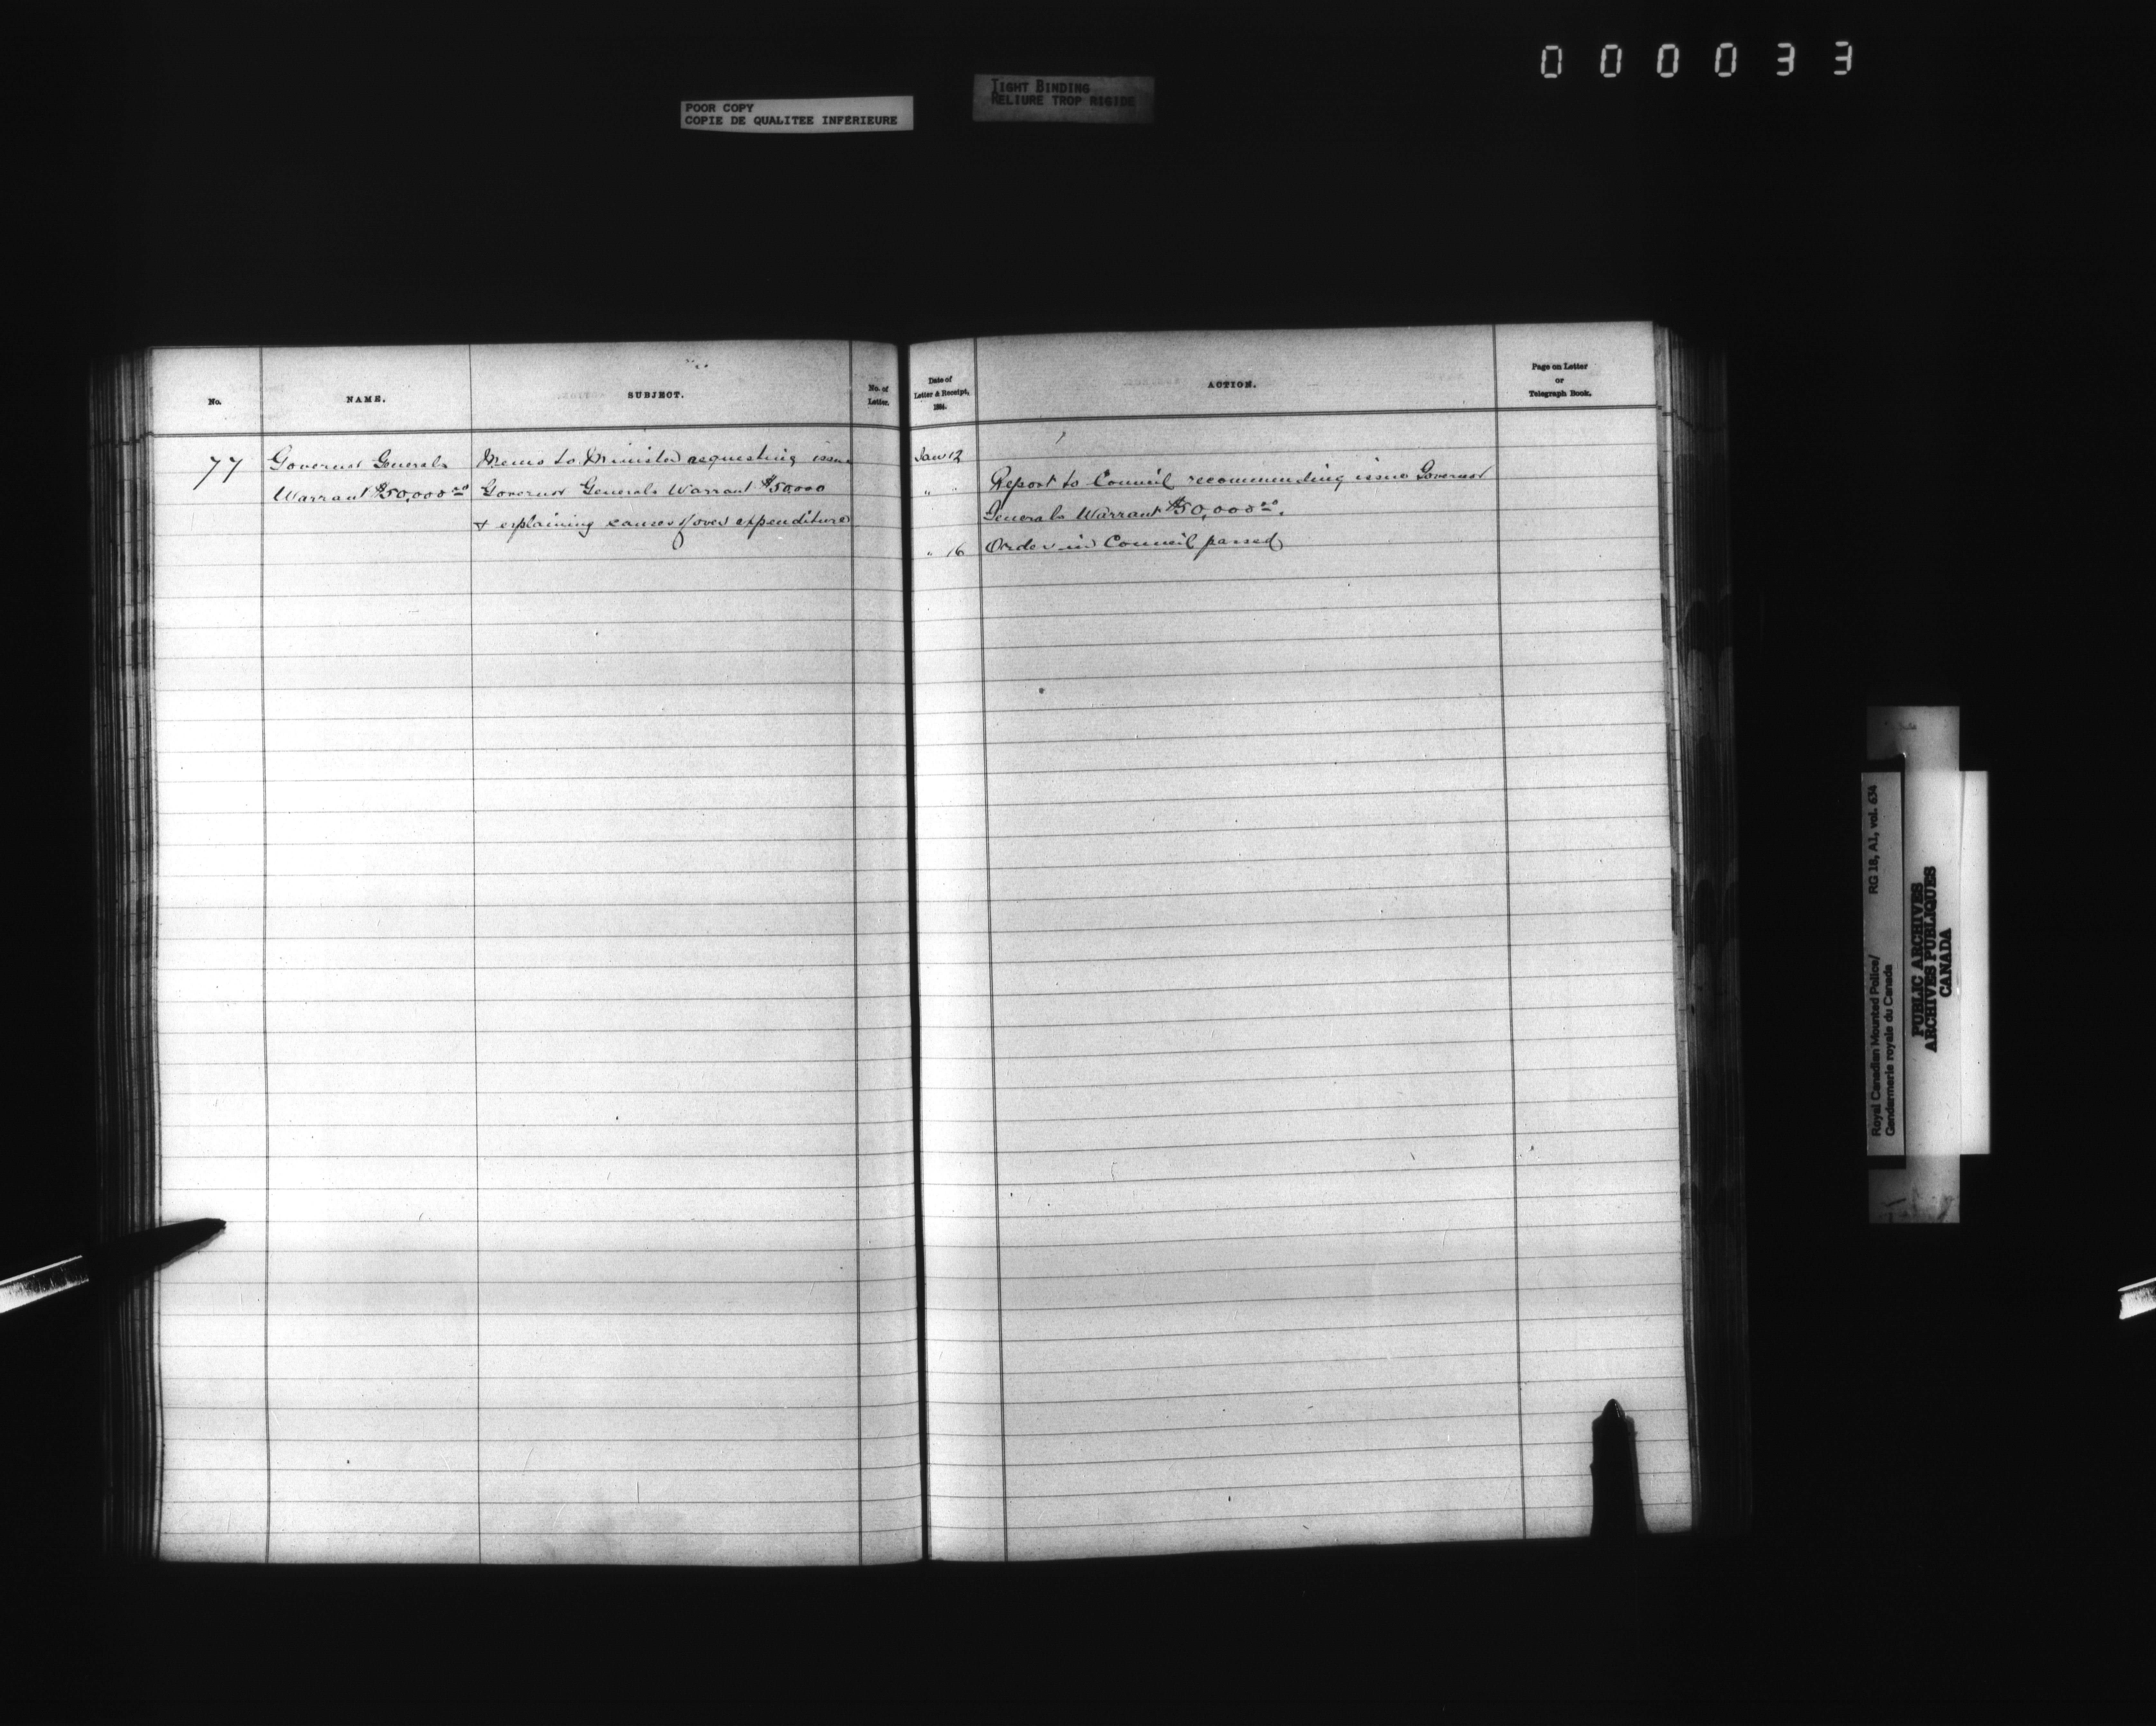 000033
POOR COPY
COPIE DE QUALITEE INFERIEURE
TIGHT BINDING
RELIURE TROP RIGIDE
No.
NAME.
SUBJECT.
No. of
Letter.
Date of
Letter & Receipt,
1884.
ACTION.
Page on Letter
or
Telegraph Book.
77
Governor Generals
Warrant $50,000.00
Memo to Minister requesting issue
Governor Generals Warrant $50,000
& explaining causes of over expenditure
Jan 12
" "
Report to Council recommending issue Governor
Generals Warrant $50,000.00.
" 16
Order in Council passed
Royal Canadian Mounted Police/
Gendarmerie royale du Canada
RG 18, A1, vol. 634
PUBLIC ARCHIVES
ARCHIVES PUBLIQUES
CANADA